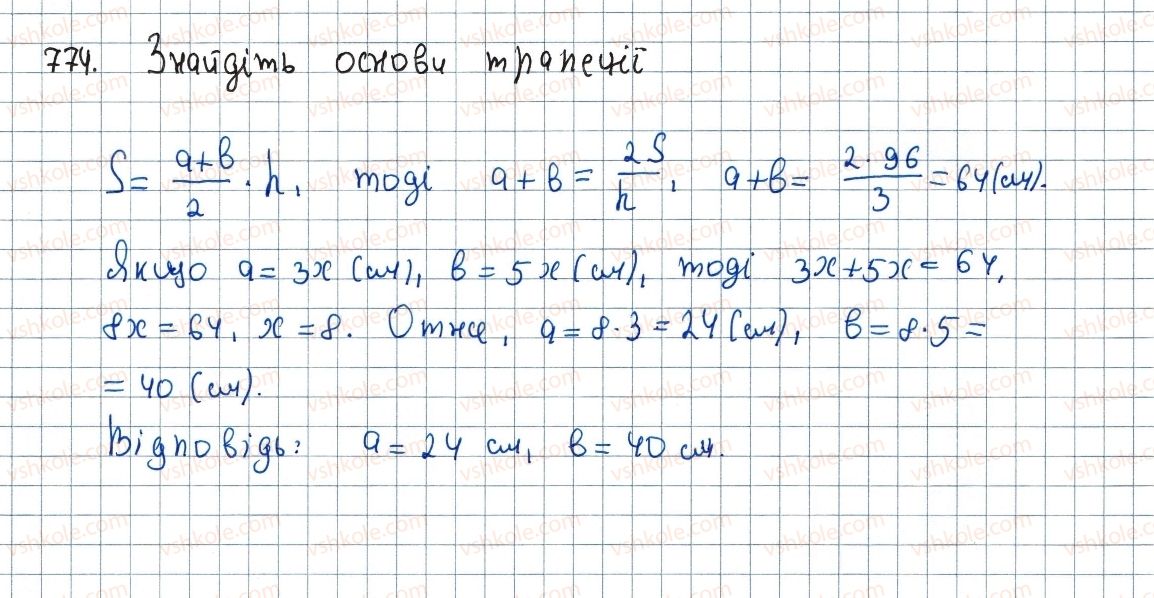 774. Знайдіть основи трапеції
S = (a+b)/2 · h, тоді a + b = 2S/h, a + b = (2·96)/3 = 64 (см).
Якщо a = 3x (см), b = 5x (см), тоді 3x + 5x = 64,
8x = 64, x = 8. Отже, a = 8·3 = 24 (см), b = 8·5 =
= 40 (см).
Відповідь: a = 24 см, b = 40 см.